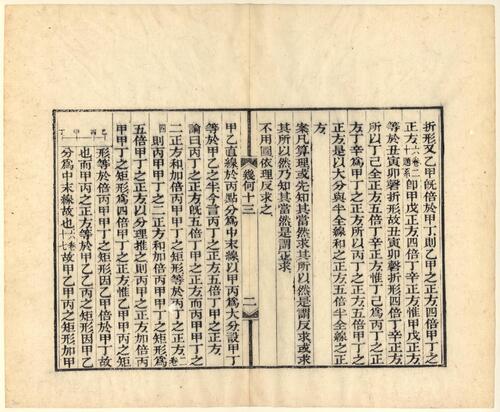 折形及乙甲旣倍於甲丁則乙甲之正方四倍甲丁之
正方二卷卽甲戊正方四倍丁辛正方惟甲戊正方
等於丑寅卯磬折形故丑寅卯磬折形四倍丁辛正方
所以丁己全正方五倍丁辛正方惟丁己爲丙丁之正
方丁辛爲甲丁之正方所以丙丁之正方五倍甲丁之
正方是以大分與半全線和之正方五倍半全線之正
方
案凡算理或先知其當然求其所以然是謂反求或求
其所以然乃知其當然是謂正求
不用圖依理反求之
幾何十三
二
甲乙直線於丙點分爲中末線以甲丙爲大分設甲丁
等於甲乙之半今言丙丁之正方五倍甲丁之正方
論曰丙丁之正方旣五倍甲丁之正方而丙甲甲丁之
二正方和加倍丙甲甲丁之矩形等於丙丁之正方二卷
四則丙甲甲丁之二正方和加倍丙甲甲丁之矩形爲
五倍甲丁之正方以分理推之則丙甲之正方加倍丙
甲甲丁之矩形爲四倍甲丁之正方惟乙甲甲丙之矩
形等於倍丙甲甲丁之矩形因乙甲倍於甲丁故
也而甲丙之正方等於甲乙乙丙之矩形因甲乙
分爲中末線故也六卷十七故甲乙甲丙之矩形加甲
乙丙甲丁